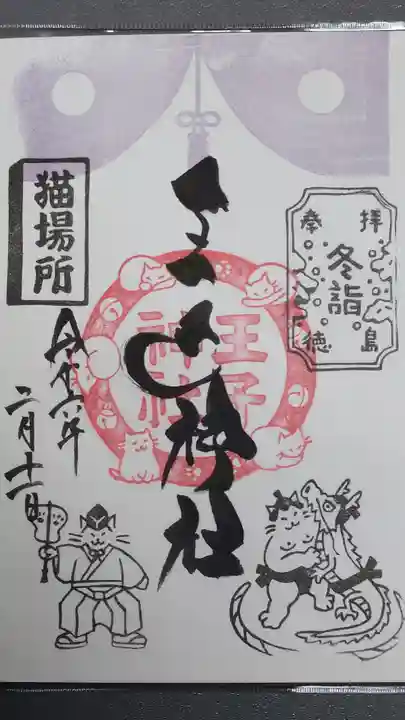 拝島
冬詣
奉徳
王子
神社
神社
猫場所
令和六年
二月十一日